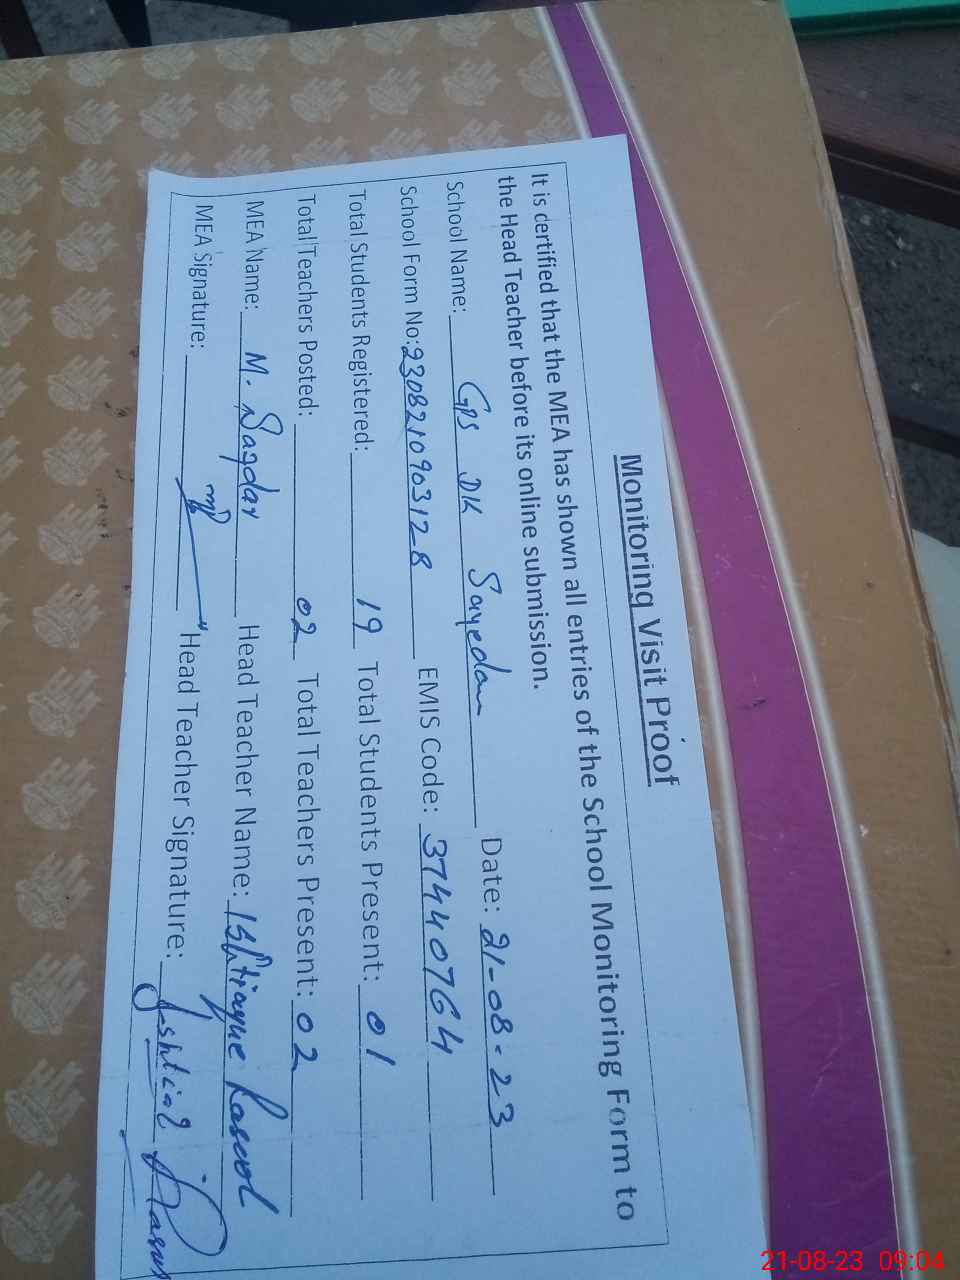 Monitoring Visit Proof
It is certified that the MEA has shown all entries of the School Monitoring Form to
the Head Teacher before its online submission.
School Name: GPS DK Sayedan Date: 21-08-23
School Form No: 2308210903128 EMIS Code: 37440764
Total Students Registered: 19 Total Students Present: 01
Total Teachers Posted: 02 Total Teachers Present: 02
MEA Name: M. Saqdar Head Teacher Name: Ishtiaque Rasool
MEA Signature: Head Teacher Signature:
21-08-23 09:04